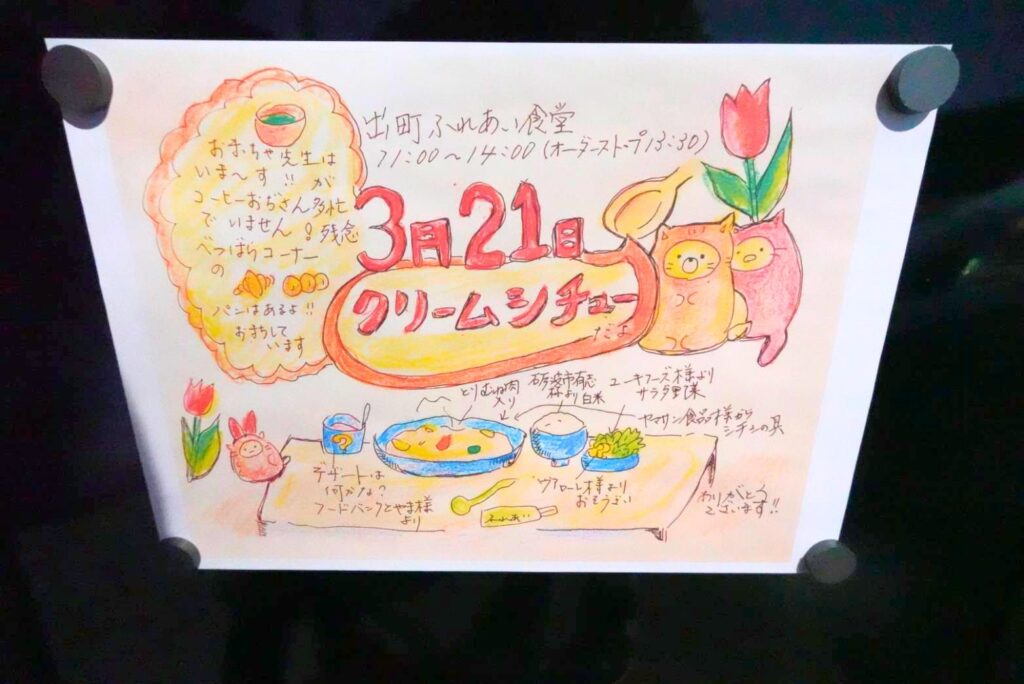 出町ふれあい食堂
11:00〜14:00(オーダーストップ13:30)
おまっちゃ先生は
いま〜す!!が
コーヒーおぢさん多忙
でいません 残念
べつばらコーナー
の
パンはあるよ!!
おまちして
います
3月21日
クリームシチュー
だよ
とりむね肉
入り
砺波市有志
様より
白米
ユーキフーズ様より
サラダ野菜
ヤマサン食品様から
シチューの具
?
デザートは
何かな?
フードバンクとやま様
より
ヴァローレ様より
おそうざい
ふれあい
ありがとう
ございます!!